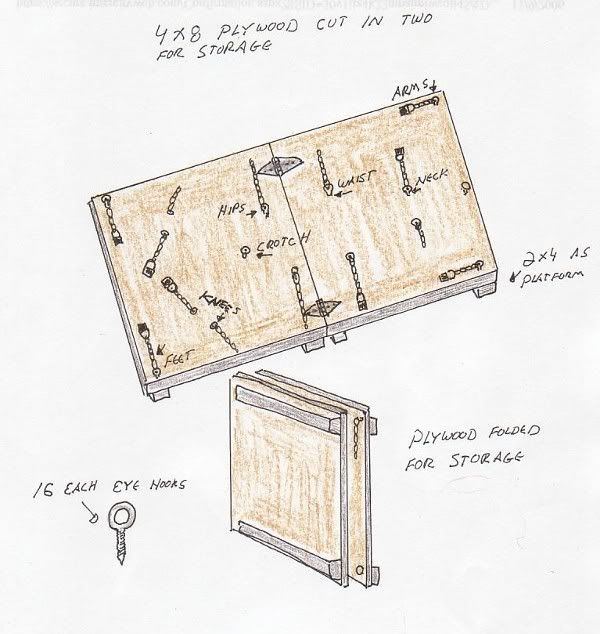 4x8 PLYWOOD CUT IN TWO
FOR STORAGE
ARMS
NECK
WAIST
HIPS
CROTCH
2x4 AS
PLATFORM
KNEES
FEET
PLYWOOD FOLDED
FOR STORAGE
16 EACH EYE HOOKS